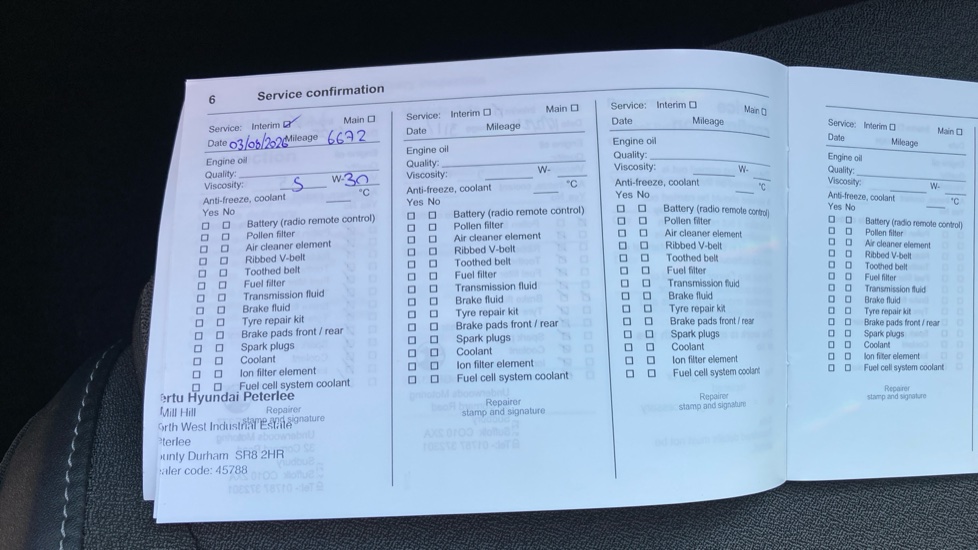 6 Service confirmation
Service: Interim ☑ Main ☐
Date 03/06/2026 Mileage 6672
Engine oil
Quality:
Viscosity: 5 W-30
Anti-freeze, coolant °C
Yes No
☐ ☐ Battery (radio remote control)
☐ ☐ Pollen filter
☐ ☐ Air cleaner element
☐ ☐ Ribbed V-belt
☐ ☐ Toothed belt
☐ ☐ Fuel filter
☐ ☐ Transmission fluid
☐ ☐ Brake fluid
☐ ☐ Tyre repair kit
☐ ☐ Brake pads front / rear
☐ ☐ Spark plugs
☐ ☐ Coolant
☐ ☐ Ion filter element
☐ ☐ Fuel cell system coolant
ertu Hyundai Peterlee
Mill Hill
Repairer
stamp and signature
orth West Industrial Estate
terlee
unty Durham SR8 2HR
aler code: 45788
Service: Interim ☐ Main ☐
Date Mileage
Engine oil
Quality:
Viscosity: W-
Anti-freeze, coolant °C
Yes No
☐ ☐ Battery (radio remote control)
☐ ☐ Pollen filter
☐ ☐ Air cleaner element
☐ ☐ Ribbed V-belt
☐ ☐ Toothed belt
☐ ☐ Fuel filter
☐ ☐ Transmission fluid
☐ ☐ Brake fluid
☐ ☐ Tyre repair kit
☐ ☐ Brake pads front / rear
☐ ☐ Spark plugs
☐ ☐ Coolant
☐ ☐ Ion filter element
☐ ☐ Fuel cell system coolant
Repairer
stamp and signature
Service: Interim ☐ Main ☐
Date Mileage
Engine oil
Quality:
Viscosity: W-
Anti-freeze, coolant °C
Yes No
☐ ☐ Battery (radio remote control)
☐ ☐ Pollen filter
☐ ☐ Air cleaner element
☐ ☐ Ribbed V-belt
☐ ☐ Toothed belt
☐ ☐ Fuel filter
☐ ☐ Transmission fluid
☐ ☐ Brake fluid
☐ ☐ Tyre repair kit
☐ ☐ Brake pads front / rear
☐ ☐ Spark plugs
☐ ☐ Coolant
☐ ☐ Ion filter element
☐ ☐ Fuel cell system coolant
Repairer
stamp and signature
Service: Interim ☐ Main ☐
Date Mileage
Engine oil
Quality:
Viscosity: W-
Anti-freeze, coolant °C
Yes No
☐ ☐ Battery (radio remote control)
☐ ☐ Pollen filter
☐ ☐ Air cleaner element
☐ ☐ Ribbed V-belt
☐ ☐ Toothed belt
☐ ☐ Fuel filter
☐ ☐ Transmission fluid
☐ ☐ Brake fluid
☐ ☐ Tyre repair kit
☐ ☐ Brake pads front / rear
☐ ☐ Spark plugs
☐ ☐ Coolant
☐ ☐ Ion filter element
☐ ☐ Fuel cell system coolant
Repairer
stamp and signature